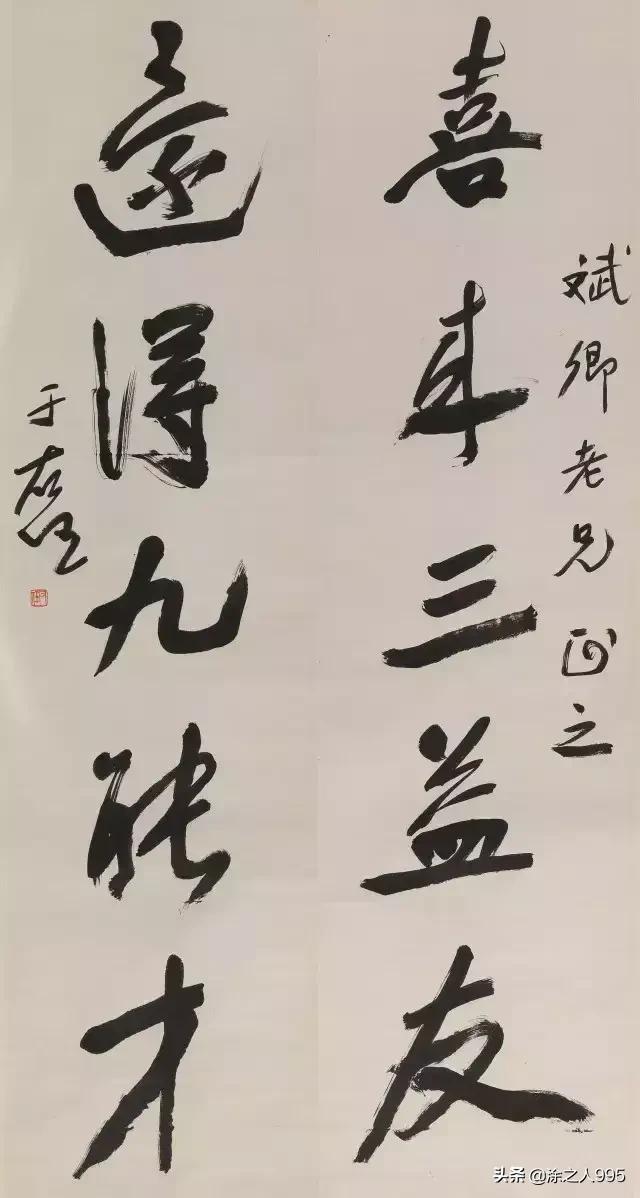 斌卿老兄正之
喜来三益友
還得九能才
于右任
头条 @涂之人995